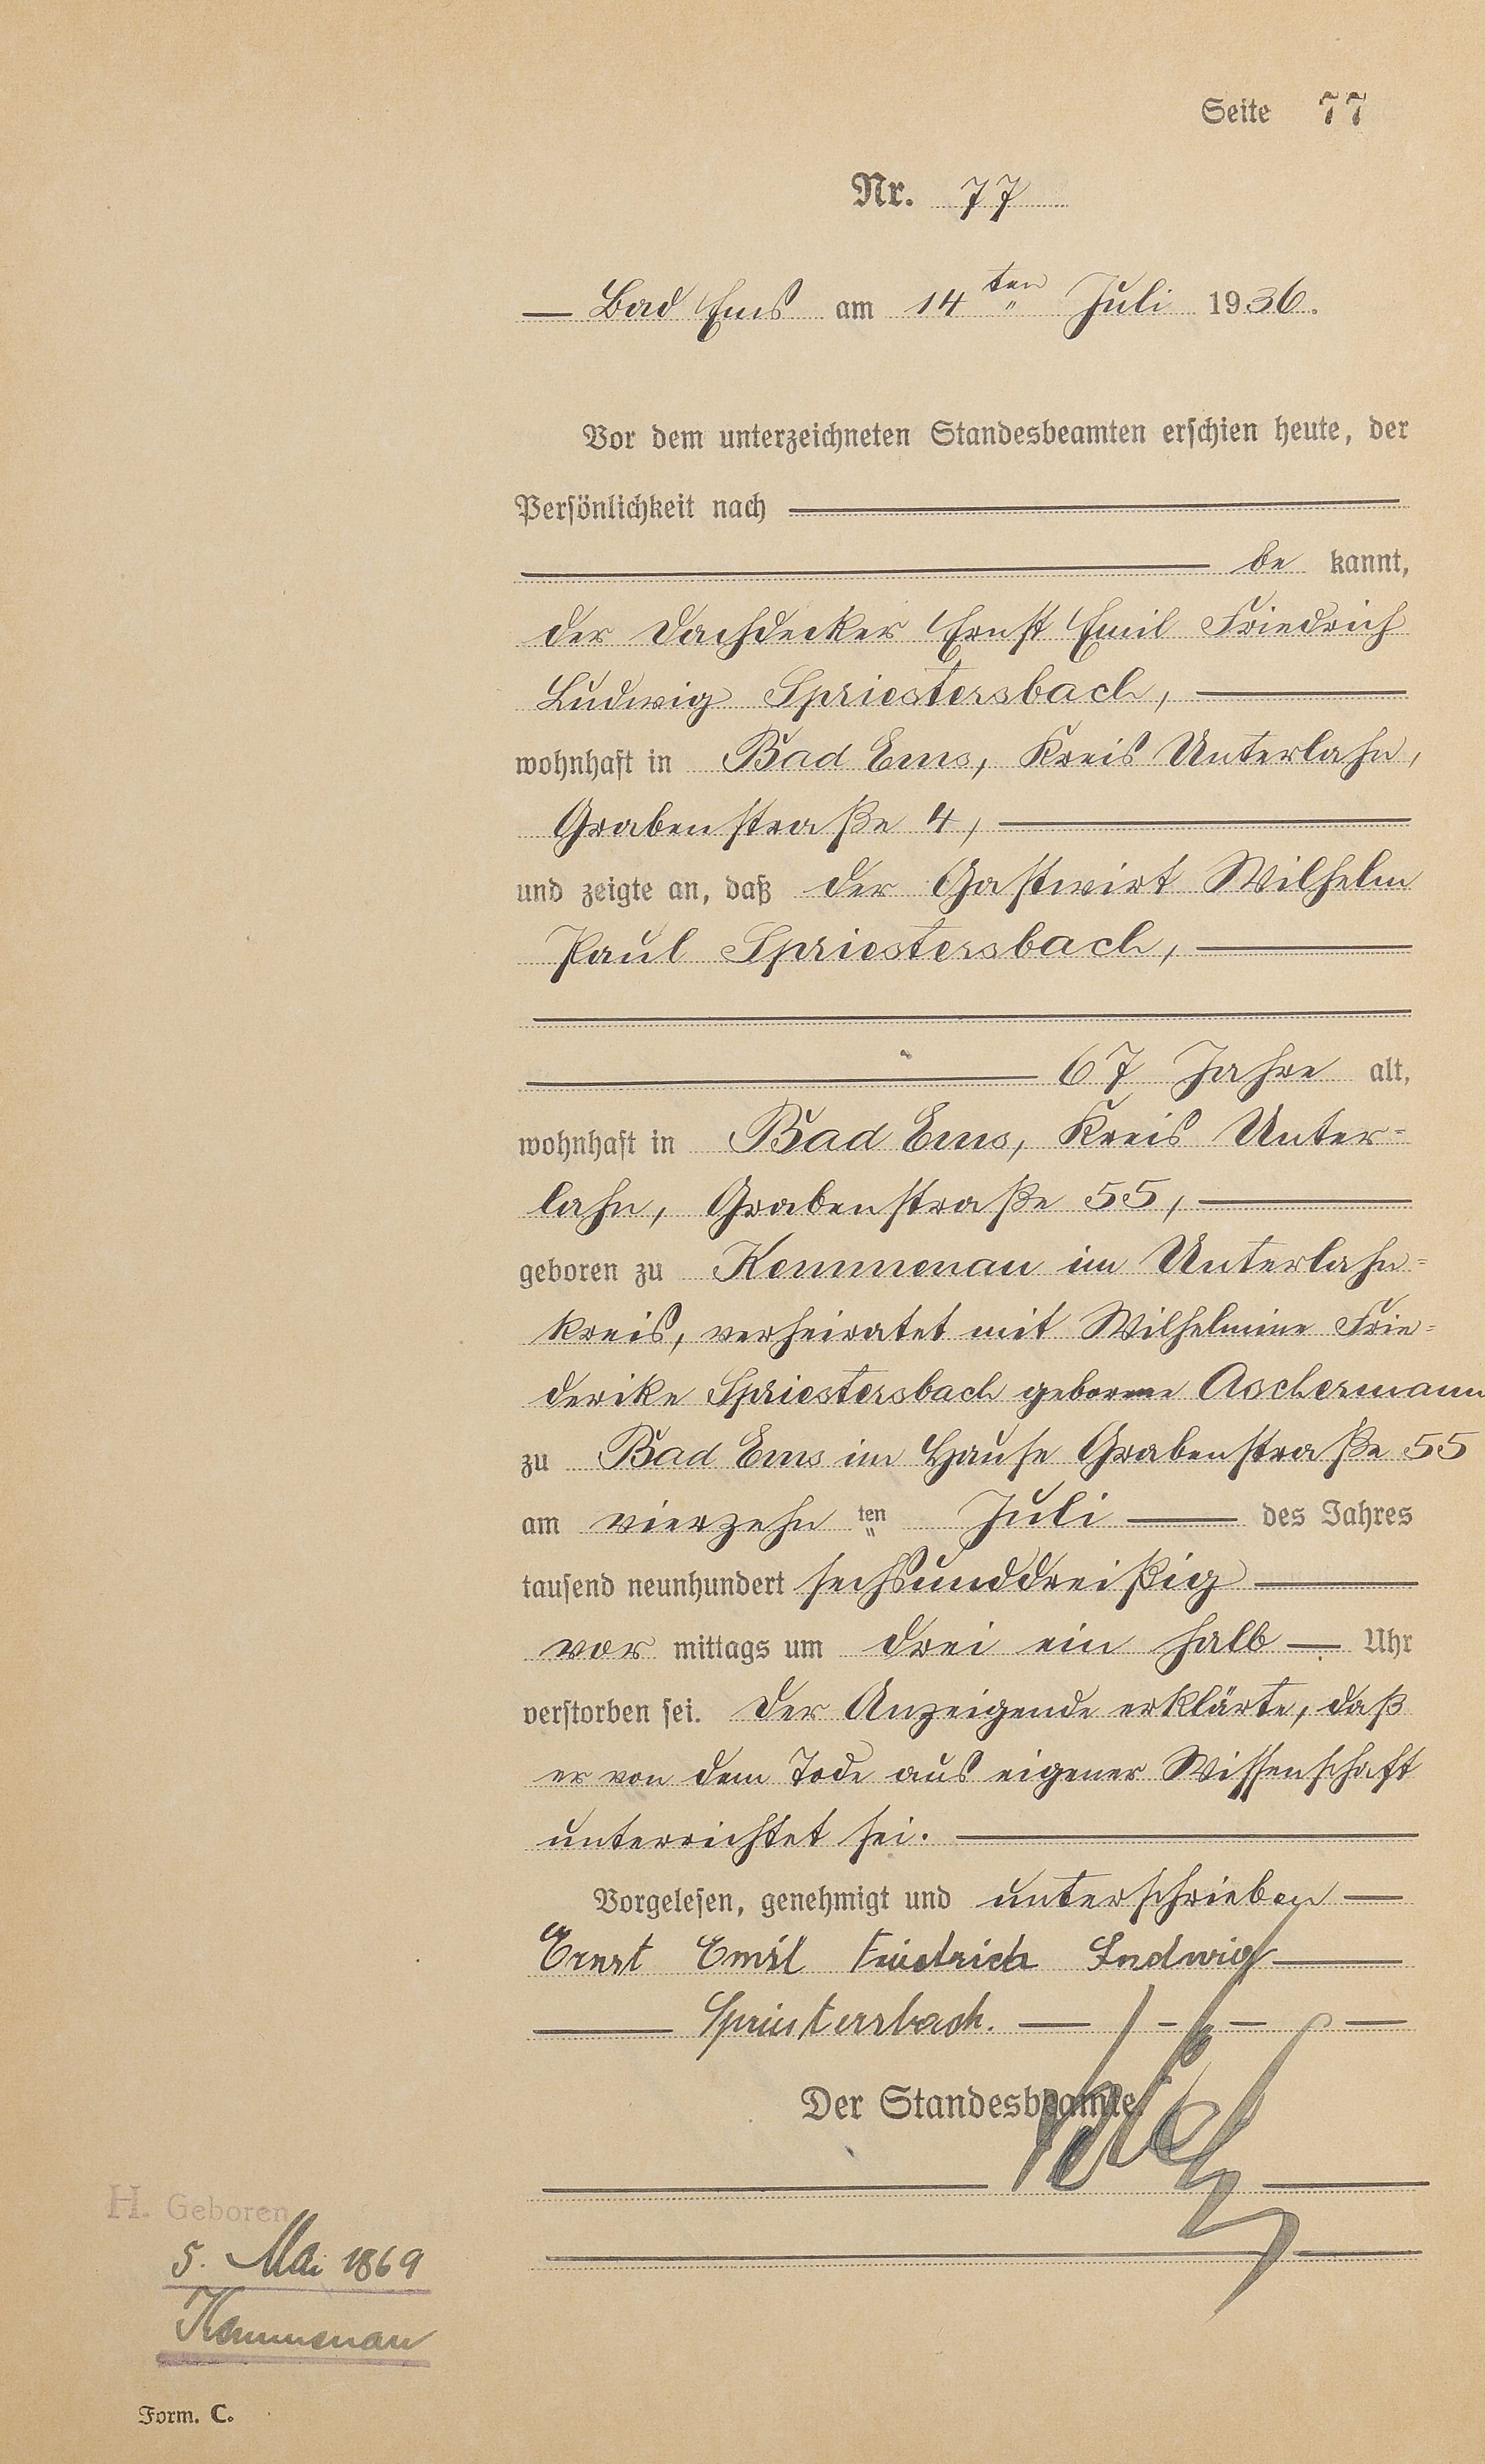 Seite 77
Nr. 77
Bad Ems am 14ten Juli 1936.
Vor dem unterzeichneten Standesbeamten erschien heute, der
Persönlichkeit nach
be kannt,
der Dachdecker Ernst Emil Friedrich
Ludwig Spriestersbach,
wohnhaft in Bad Ems, Kreis Unterlahn,
Grabenstraße 4,
und zeigte an, daß der Gastwirt Wilhelm
Paul Spriestersbach,
67 Jahre alt,
wohnhaft in Bad Ems, Kreis Unter-
lahn, Grabenstraße 55,
geboren zu Kemmenau im Unterlahn-
kreis, verheiratet mit Wilhelmine Frie-
derike Spriestersbach geborene Aschermann
zu Bad Ems im Hause Grabenstraße 55
am vierzehn ten Juli des Jahres
tausend neunhundert sechsunddreißig
vor mittags um drei ein halb Uhr
verstorben sei. Der Anzeigende erklärte, daß
er von dem Tode aus eigener Wissenschaft
unterrichtet sei.
Vorgelesen, genehmigt und unterschrieben
Ernst Emil Friedrich Ludwig
Spriestersbach.
Der Standesbeamte.
H. Geboren
5. Mai 1869
Kemmenau
Form. C.